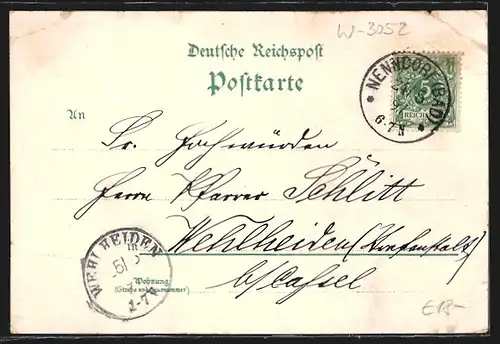 W-3052
Deutsche Reichspost
Postkarte
NENNDORF (BAD)
6-7N
5
REICHS
An
Sr. Hochwürden
Herrn Pfarrer Schlitt
Wehlheiden
b/Cassel
WEHLHEIDEN
Wohnung
(Straße und Hausnummer)